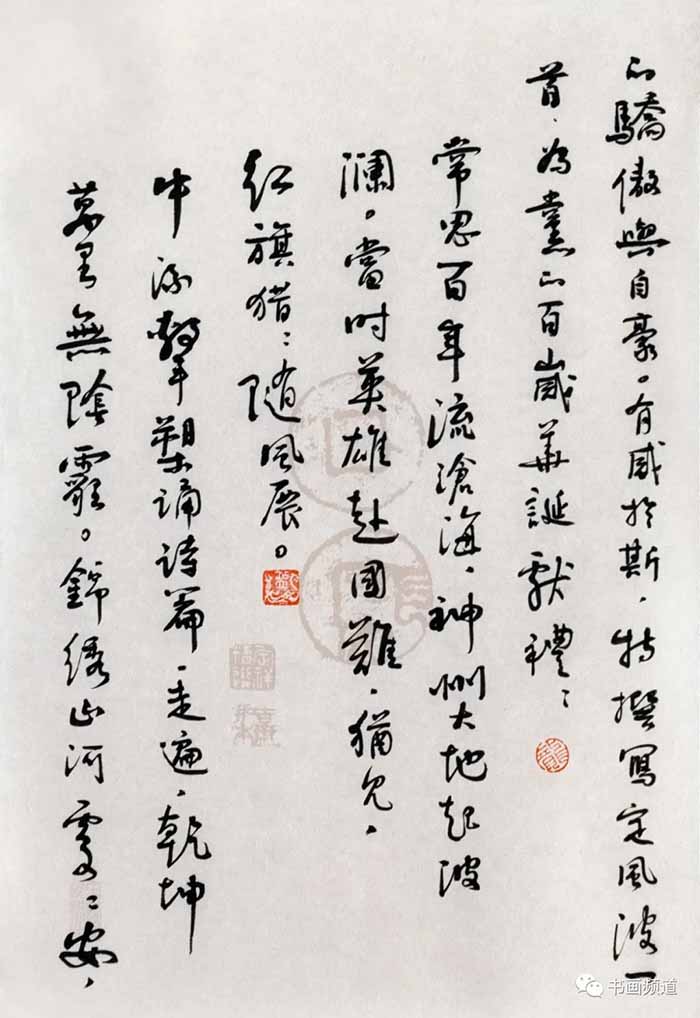 的驕傲與自豪。有感於斯，特撰寫定風波一
首，為黨的百歲華誕獻禮：
常思百年流滄海，神州大地起波
瀾。當时英雄赴國難，猶見，
红旗猎々随風展。
中流擊槊誦詩篇，走遍，乾坤
萬里無陰霾。錦绣山河處々安，
书画频道